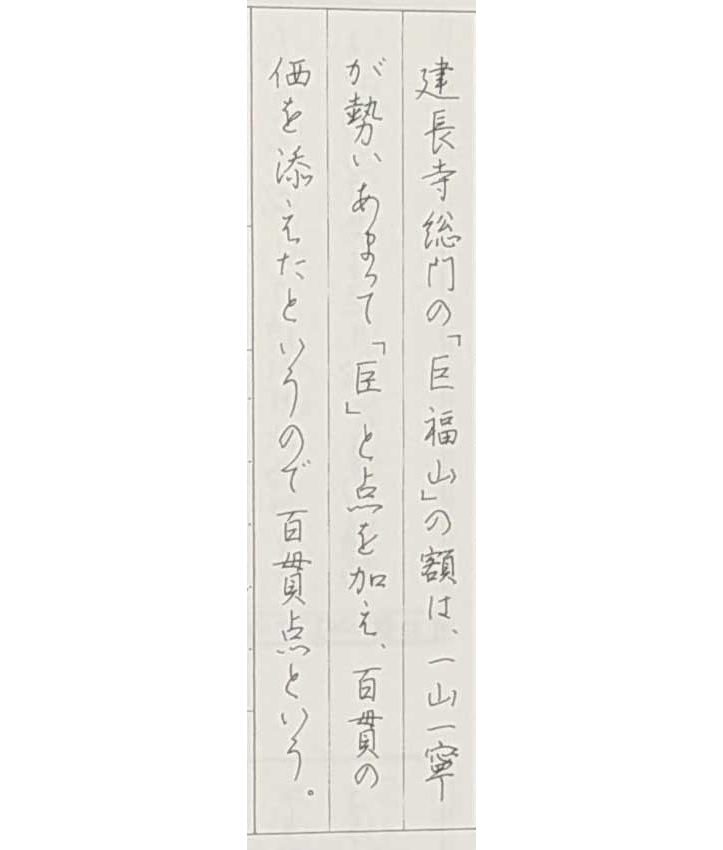 建長寺総門の「巨福山」の額は、一山一寧
が勢いあまって「𦣞」と点を加え、百貫の
価を添えたというので百貫点という。